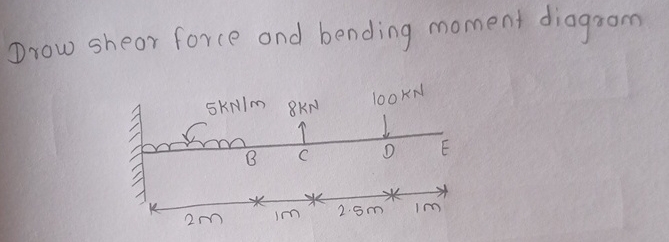 Drow shear force and bending moment diagram
5KN/m 8KN 100KN
B C D E
2m 1m 2.5m 1m